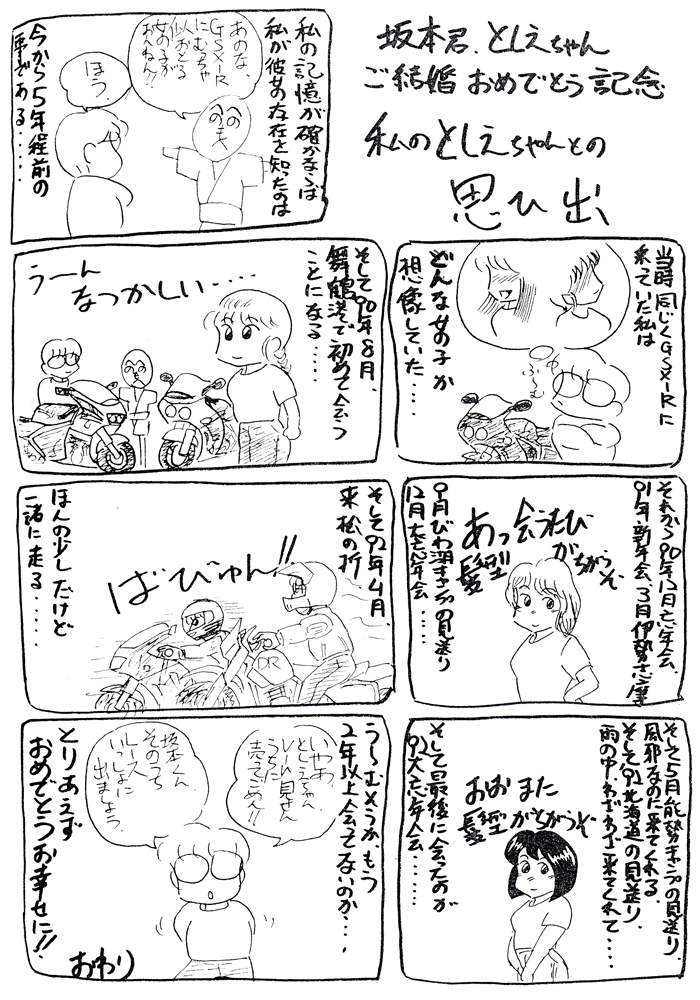 坂本君、としえちゃん
ご結婚おめでとう記念
私のとしえちゃんとの
思ひ出
私の記憶が確かならば
私が彼女の存在を知ったのは
あのな、
GSX-R
にむっちゃ
似おとる
女の子が
おんねん!!
ほう。
今から5年程前の
事である・・・・・
当時同じくGSX-Rに
乗っていた私は
どんな女の子か
想像していた・・・・
そして90年8月、
舞鶴港で初めて会う
ことになる・・・・
うーん
なつかしい・・・・
それから90年12月忘年会、
91年新年会、3月伊勢志摩
9月びわ湖キャンプの見送り
12月大忘年会・・・・・・
あっ会うたび
髪型がちがうぞ
そして92年4月、
来松の折
ばびゅん!!
ほんの少しだけど
一緒に走る・・・・・
そして5月能勢キャンプの見送り
風邪なのに来てくれる。
そして92北海道の見送り
雨の中わざわざ来てくれて・・・・
おおまた
髪型がちがうぞ
そして最後に会ったのが
92大忘年会・・・・・・・・
う〜むそうか、もう
2年以上会ってないのか・・・、
いやあ、
としえちゃん
うちに
売ってこん!!
坂本くん、
そのうち
レース
いっしょに
出ましょう
とりあえず
おめでとうお幸せに!!
おわり